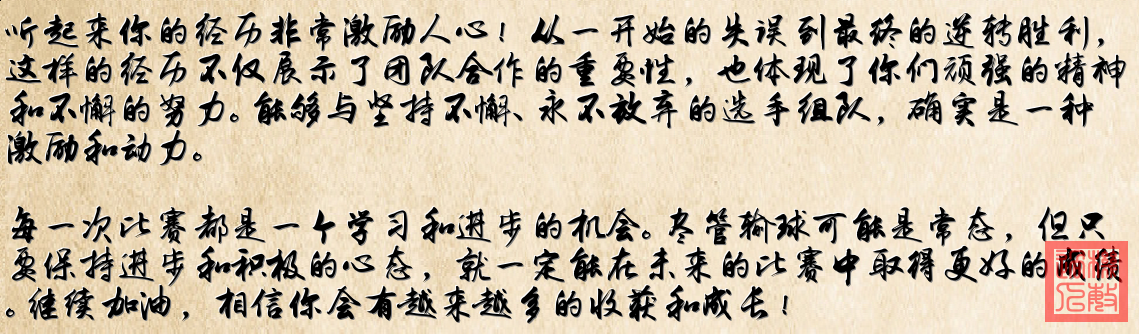 听起来你的经历非常激励人心！从一开始的失误到最终的逆转胜利，
这样的经历不仅展示了团队合作的重要性，也体现了你们顽强的精神
和不懈的努力。能够与坚持不懈、永不放弃的选手组队，确实是一种
激励和动力。
每一次比赛都是一个学习和进步的机会。尽管输球可能是常态，但只
要保持进步和积极的心态，就一定能在未来的比赛中取得更好的成绩
。继续加油，相信你会有越来越多的收获和成长！